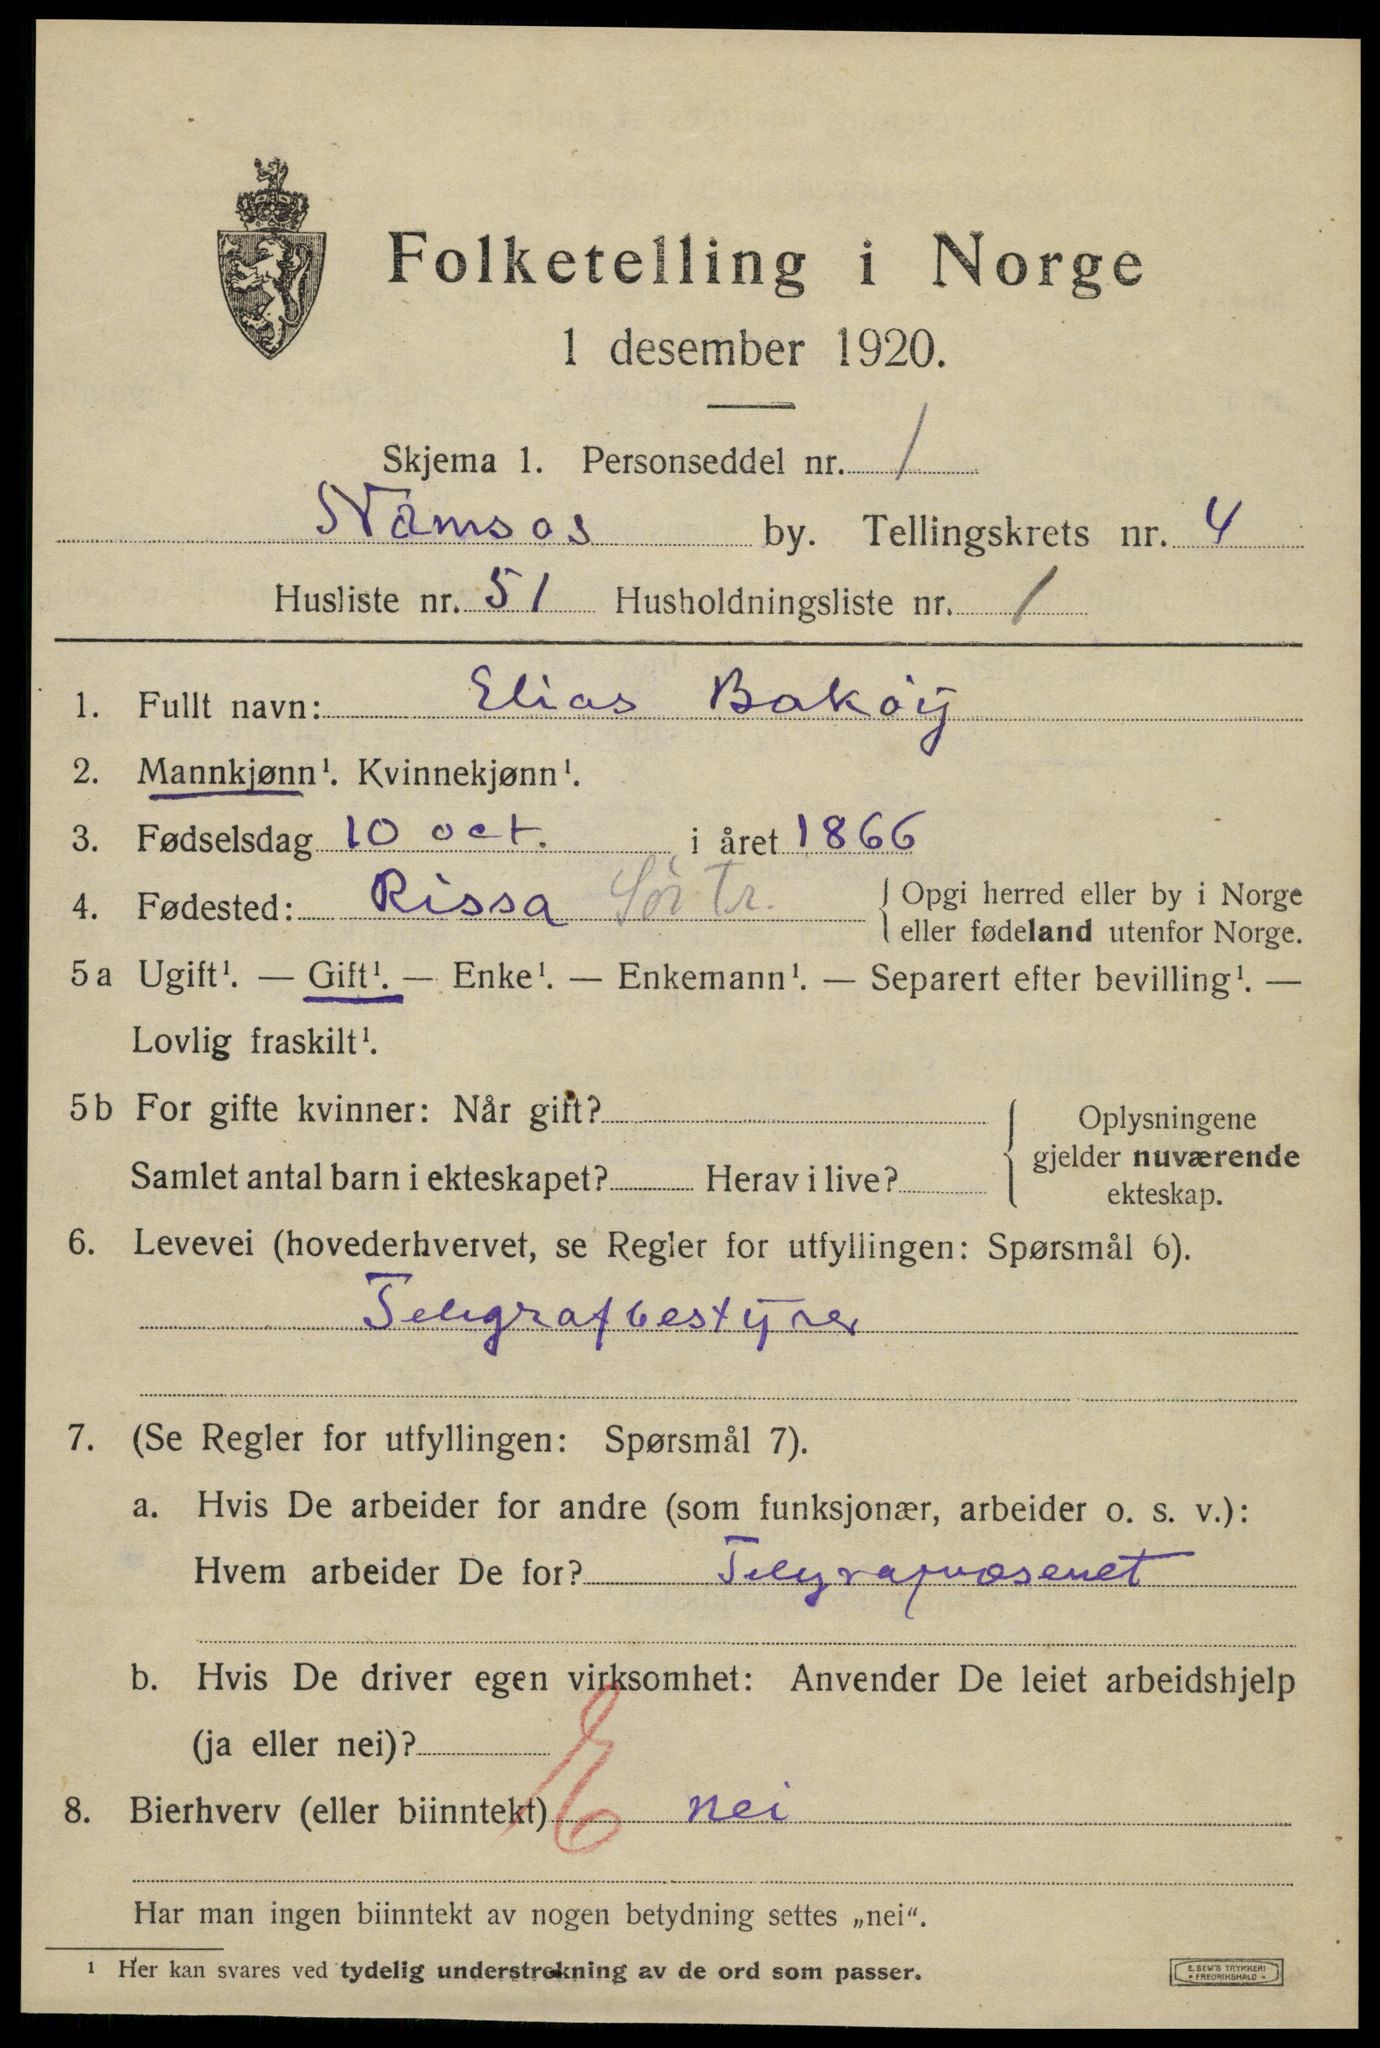 Folketelling i Norge
1 desember 1920.
Skjema 1. Personseddel nr. 1
Namsos by. Tellingskrets nr. 4
Husliste nr. 51 Husholdningsliste nr. 1
1. Fullt navn: Elias Bakøy
2. Mannkjønn¹. Kvinnekjønn¹.
3. Fødselsdag 10 oct. i året 1866
4. Fødested: Rissa Sør Tr. { Opgi herred eller by i Norge
eller fødeland utenfor Norge.
5a Ugift¹. — Gift¹. — Enke¹. — Enkemann¹. — Separert efter bevilling¹. —
Lovlig fraskilt¹.
5b For gifte kvinner: Når gift?
Samlet antal barn i ekteskapet? Herav i live?
{ Oplysningene
gjelder nuværende
ekteskap.
6. Levevei (hovederhvervet, se Regler for utfyllingen: Spørsmål 6).
Telegrafbestyrer
7. (Se Regler for utfyllingen: Spørsmål 7).
a. Hvis De arbeider for andre (som funksjonær, arbeider o. s. v.):
Hvem arbeider De for? Telegrafvæsenet
b. Hvis De driver egen virksomhet: Anvender De leiet arbeidshjelp
(ja eller nei)?
E
8. Bierhverv (eller biinntekt) nei
Har man ingen biinntekt av nogen betydning settes „nei".
¹ Her kan svares ved tydelig understrekning av de ord som passer.
E. SEM'S TRYKKERI
• FREDRIKSHALD •